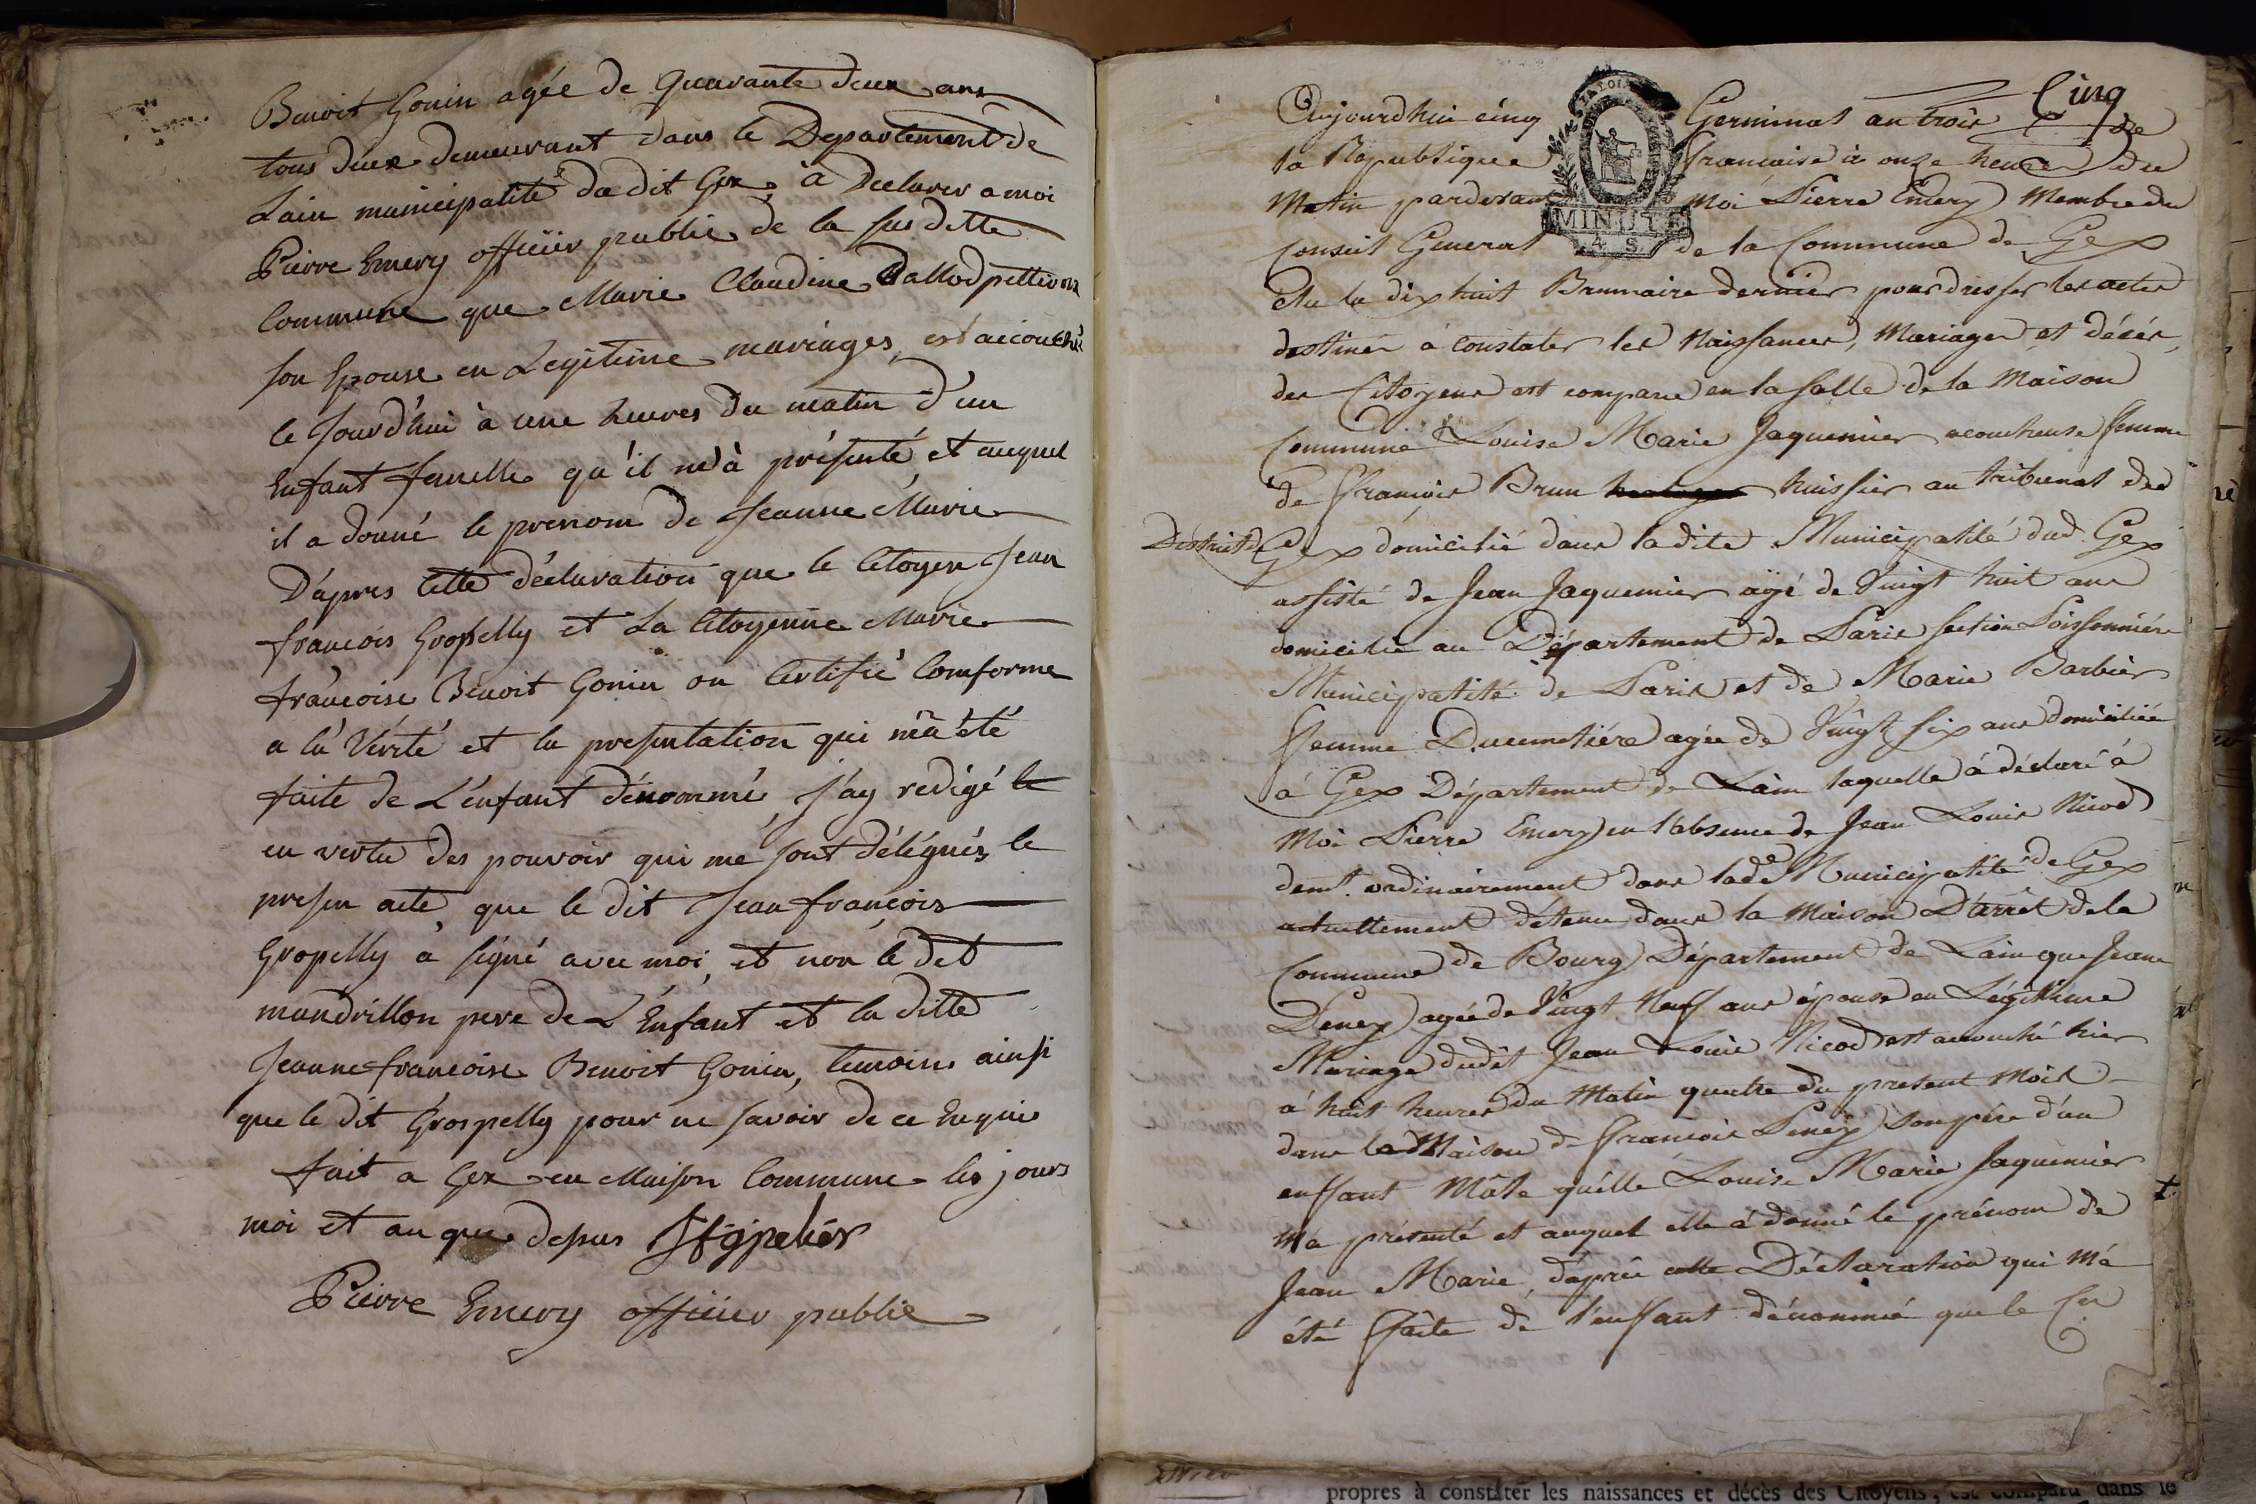 Benoit Gonin agée de quarante deux ans
tous deux demeurant dans le Departement de
Lain municipalité dudit Gex, à Declarer a moi
Pierre Emery officier public de la susditte
Commune que Marie Claudine
son Epouse en Legitime mariages, est accouché
ce Jourd'hui à une heures du matin d'un
Enfant femelle qu'il m'à présenté, et auquel
il a donné le prenom de Jeanne Marie
D'apres cette déclaration que le Citoyen Jean
francois Gropelly et La Citoyenne Marie
francoise Benoit Gonin on Certifié Comforme
a la Vérité et la presentation qui m'a été
faite de L'énfant dénommé, j'ay redigé le
en vertu des pouvoir qui me sont délégués le
presen acte, que le dit Jean françois
Gropelly à signé avec moi, et non le dit
mandrillon pere de L'Enfant et la ditte
Jeanne francoise Benoit Gonin, temoins ainsi
que le dit Grospelly pour ne savoir de ce Enquis
fait a Gex en Maison Commune les jours
moi et an que dessus
Pierre Emery officier public
Cinq
Aujourdhui cinq Germinal an trois de
la Republique française à onze heures du
Matin pardevant moi Pierre Emery Membre du
Conseil General de la Commune de Gex
Elu le dix huit Brumaire dernier pour dresser les actes
destinés à constater les Naissances, Mariages et décès
des Citoyens est comparue en la salle de la Maison
Commune Louise Marie Jaquemier acoucheuse femme
de François Brun huissier au tribunal du
District de Gex domicilié dans ladite Municipalité dud. Gex
assisté de Jean Jaquemier agé de Vingt huit ans
domicilié au Département de Paris section Poissonnière
Municipalité de Paris et de Marie Barbier
femme Ducimetière agée de Vingt six ans domiciliée
à Gex Département de Lain laquelle à déclaré à
Moi Pierre Emery en l'absence de Jean Louis Nicod
demt. ordinairement dans lade Municipalité de Gex
actuellement détenu dans la Maison D'arrêt de la
Commune de Bourg Département de Lain que Jeane
Peney agée de Vingt Neuf ans épouse en Légitime
Mariage dudit Jean Louis Nicod est accouché hier
à huit heures du Matin quatre du present Mois
dans la Maison de François Peney son père d'un
enffant Mâle qu'elle Louise Marie Jaquemier
M'a présenté et auquel elle à donné le prénom de
Jean Marie, d'après cette Déclaration qui M'a
été ffaite de l'enffant dénommé que le Cn
MINUTE
4 S
propres à constater les naissances et décès des Citoyens, est comparu dans le